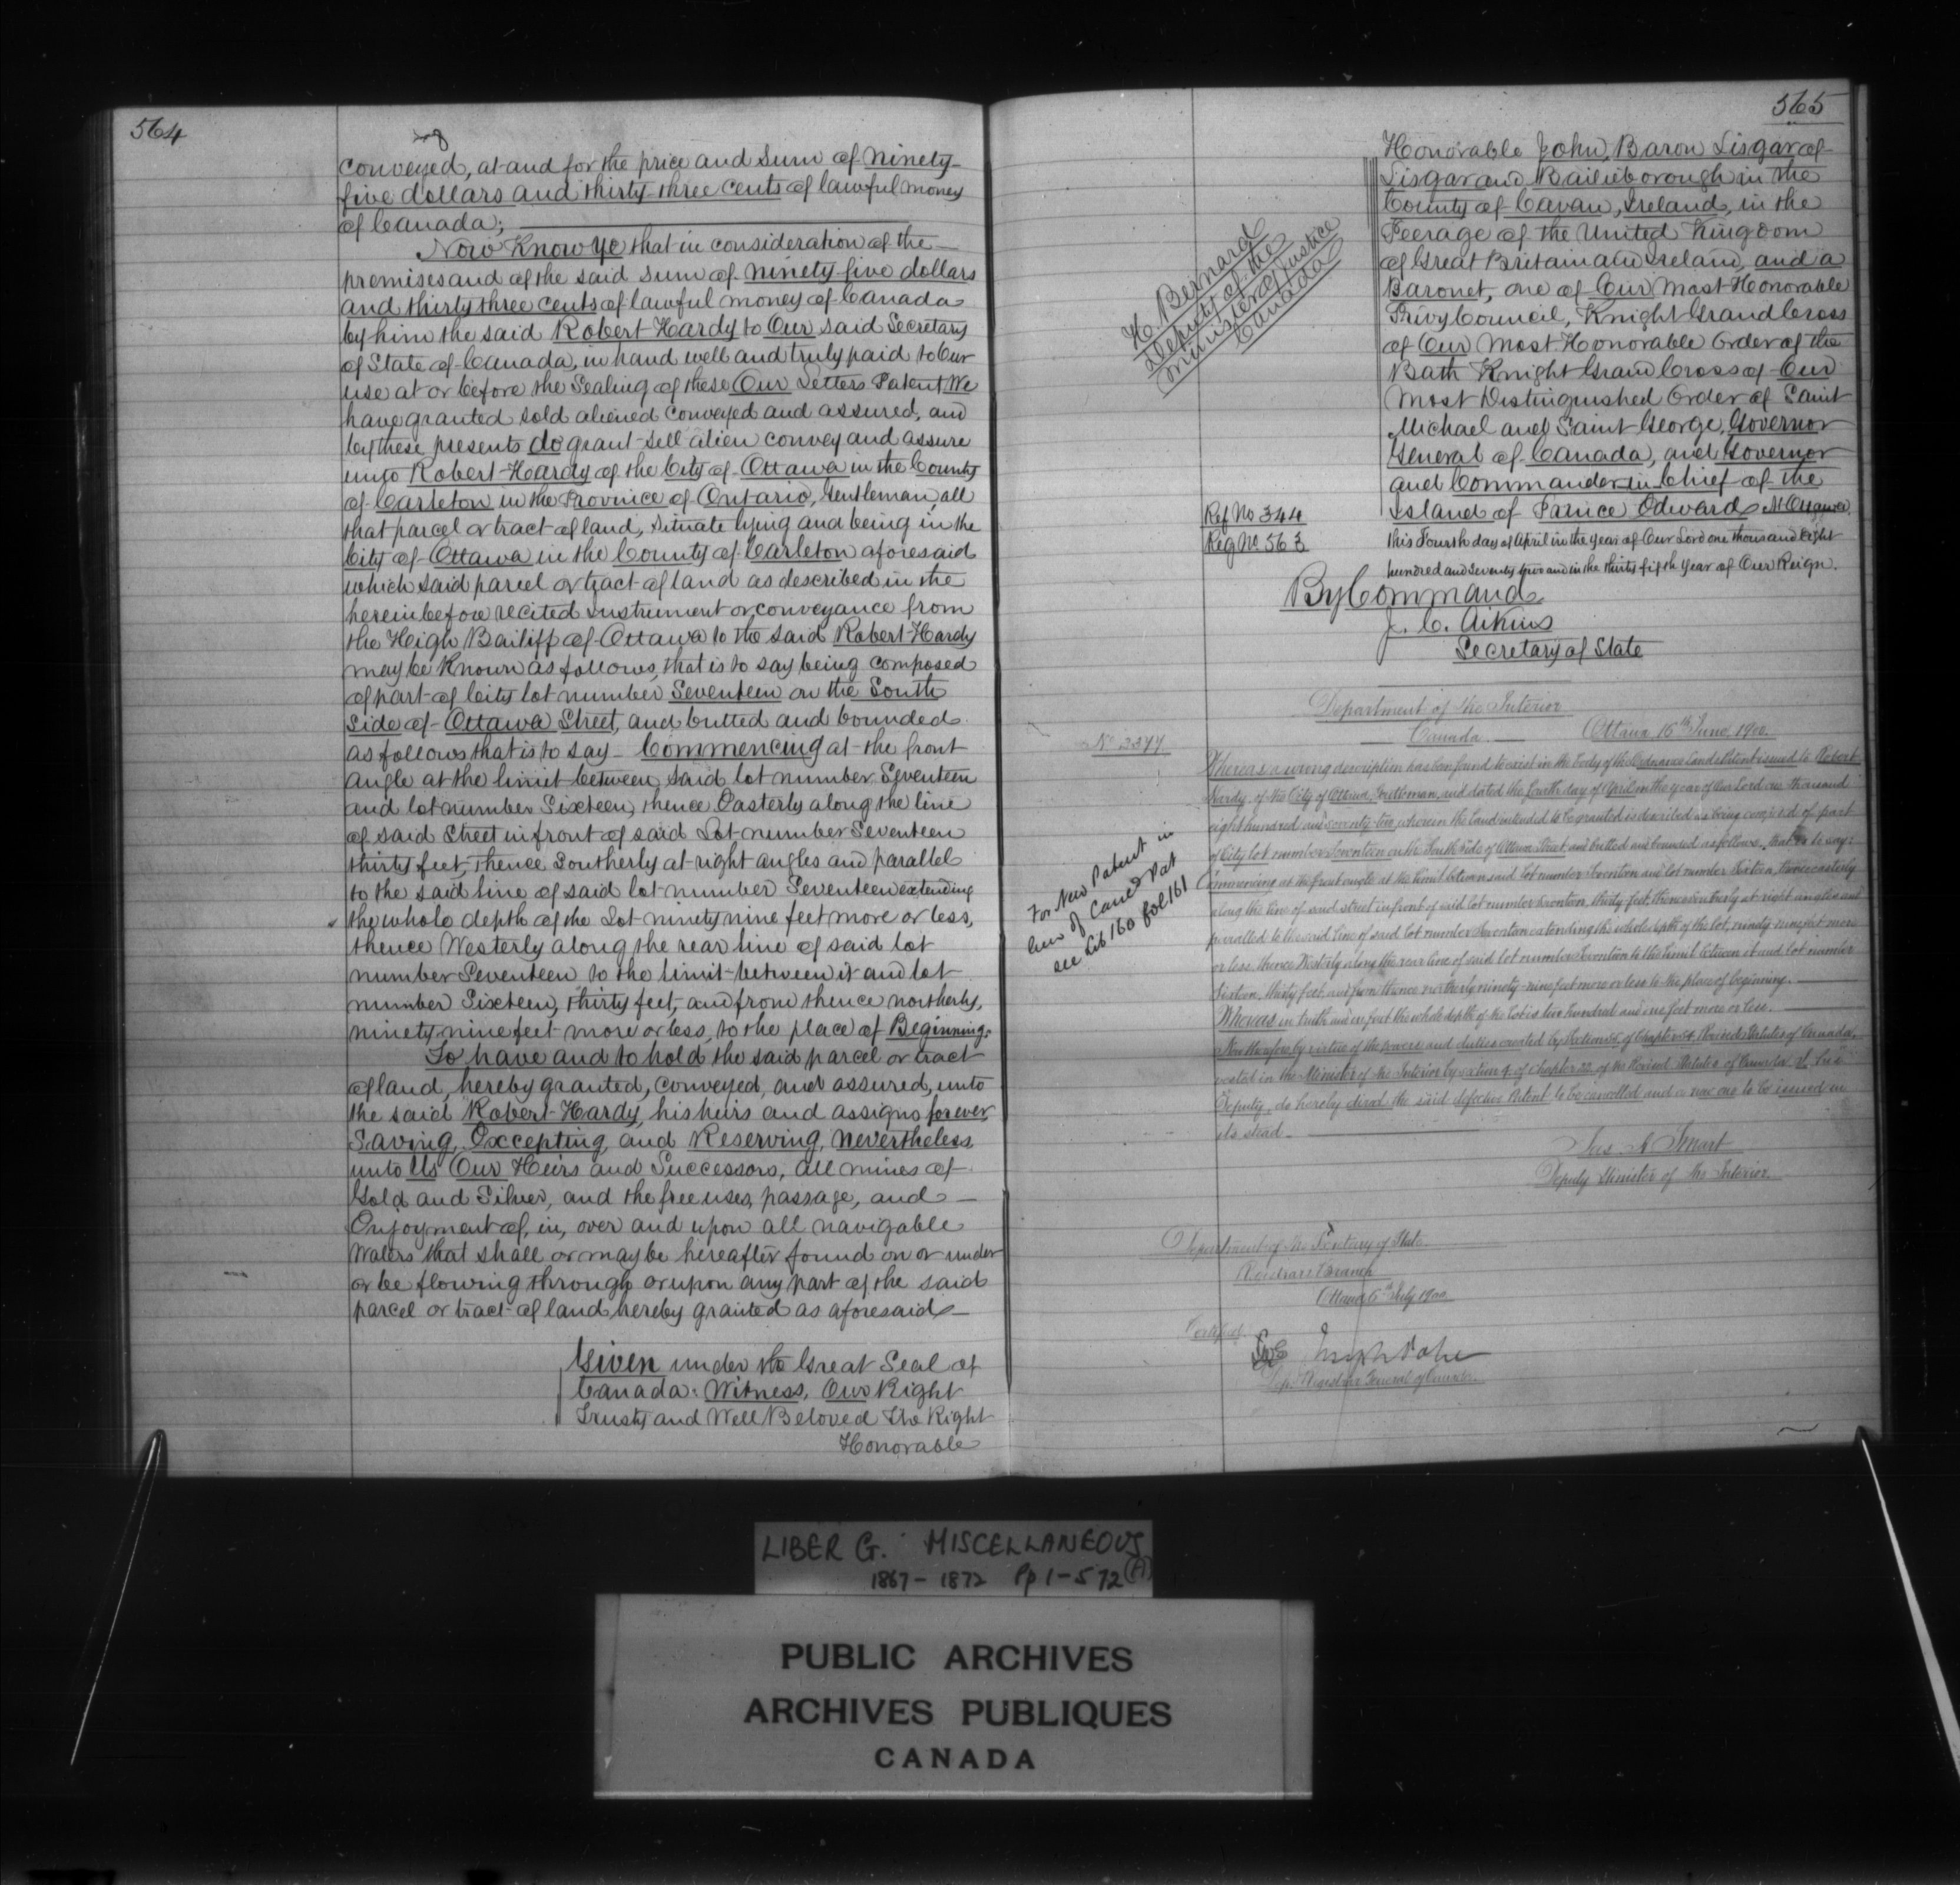 564
conveyed, at and for the price and sum of ninety
five dollars and thirty three cents of lawful money
of Canada;
Now Know Ye that in consideration of the
premises and of the said sum of ninety five dollars
and thirty three cents of lawful money of Canada
by him the said Robert Hardy to Our said Secretary
of State of Canada, in hand well and truly paid to Our
use at or before the Sealing of these Our Letters Patent We
have granted sold aliened conveyed and assured, and
by these presents do grant sell alien convey and assure
unto Robert Hardy of the City of Ottawa in the County
of Carleton in the Province of Ontario, Gentleman, all
that parcel or tract of land, situate lying and being in the
City of Ottawa in the County of Carleton aforesaid
which said parcel or tract of land as described in the
hereinbefore recited instrument or conveyance from
the High Bailiff of Ottawa to the said Robert Hardy
may be known as follows, that is to say being composed
of part of City lot number Seventeen on the South
Side of Ottawa Street, and butted and bounded
as follows that is to say Commencing at the front
angle at the limit between said lot number Seventeen
and lot number Sixteen, thence Easterly along the line
of said Street in front of said Lot number Seventeen
thirty feet, thence Southerly at right angles and parallel
to the said line of said lot number Seventeen extending
the whole depth of the Lot ninety nine feet more or less,
thence Westerly along the rear line of said lot
number Seventeen to the limit between it and lot
number Sixteen, thirty feet, and from thence northerly,
ninety nine feet more or less, to the place of Beginning.
To have and to hold the said parcel or tract
of land, hereby granted, conveyed, and assured, unto
the said Robert Hardy, his heirs and assigns forever,
Saving, Excepting, and Reserving, nevertheless,
unto Us Our Heirs and Successors, all mines of
Gold and Silver, and the free uses, passage, and
Enjoyment of, in, over and upon all navigable
Waters that shall or may be hereafter found on or under
or be flowing through or upon any part of the said
parcel or tract of land hereby granted as aforesaid
Given under the Great Seal of
Canada: Witness, Our Right
Trusty and Well Beloved The Right
Honorable
565
Honorable John, Baron Lisgar of
Lisgar and Bailieborough in the
County of Cavan, Ireland, in the
Peerage of the United Kingdom
of Great Britain and Ireland, and a
Baronet, one of Our Most Honorable
Privy Council, Knight Grand Cross
of Our Most Honorable Order of the
Bath Knight Grand Cross of Our
Most Distinguished Order of Saint
Michael and Saint George, Governor
General of Canada, and Governor
and Commander in Chief of the
Island of Prince Edward, At Ottawa,
this Fourth day of April in the year of Our Lord one thousand eight
hundred and seventy two and in the thirty fifth year of Our Reign.
H. Bernard
Deputy of the
Minister of Justice
Canada
Ref No 344
Reg No 563
By Command
J. C. Aikins
Secretary of State
Department of the Interior
Canada. Ottawa 16th June, 1900.
No 2377
Whereas a wrong description has been found to exist in the body of the Ordnance Land Patent issued to Robert
Hardy, of the City of Ottawa, Gentleman, and dated the fourth day of April in the year of Our Lord one thousand
eight hundred and seventy-two, wherein the land intended to be granted is described as being composed of part
of City lot number Seventeen on the South side of Ottawa Street, and butted and bounded as follows, that is to say:
Commencing at the front angle at the limit between said lot number Seventeen and lot number Sixteen, thence easterly
along the line of said street in front of said lot number seventeen, thirty feet, thence Southerly at right angles and
paralled to the said line of said lot number Seventeen extending the whole depth of the lot, ninety nine feet more
or less, thence Westerly along the rear line of said lot number Seventeen to the limit between it and lot number
Sixteen, thirty feet, and from thence northerly ninety-nine feet more or less to the place of beginning.
Whereas in truth and in fact the whole depth of the lot is two hundred and one feet more or less.
Now therefore by virtue of the powers and duties created by Section of Chapter Revised Statutes of Canada,
vested in the Minister of the Interior by section 4 of Chapter 22 of the Revised Statutes of Canada, I, his
Deputy, do hereby direct the said defective Patent to be cancelled and a new one to be issued in
its stead.
Jas A Smart
Deputy Minister of the Interior.
For New Patent in
lieu of Canced Pat
see Lib 160 fol 161
Department of the Secretary of State.
Registrar's Branch
Ottawa 6th July 1900.
Certified.
Joseph Pope
Dep. Registrar General of Canada.
LIBER G. MISCELLANEOUS
1867 - 1872 Pp 1-572 (A)
PUBLIC ARCHIVES
ARCHIVES PUBLIQUES
CANADA